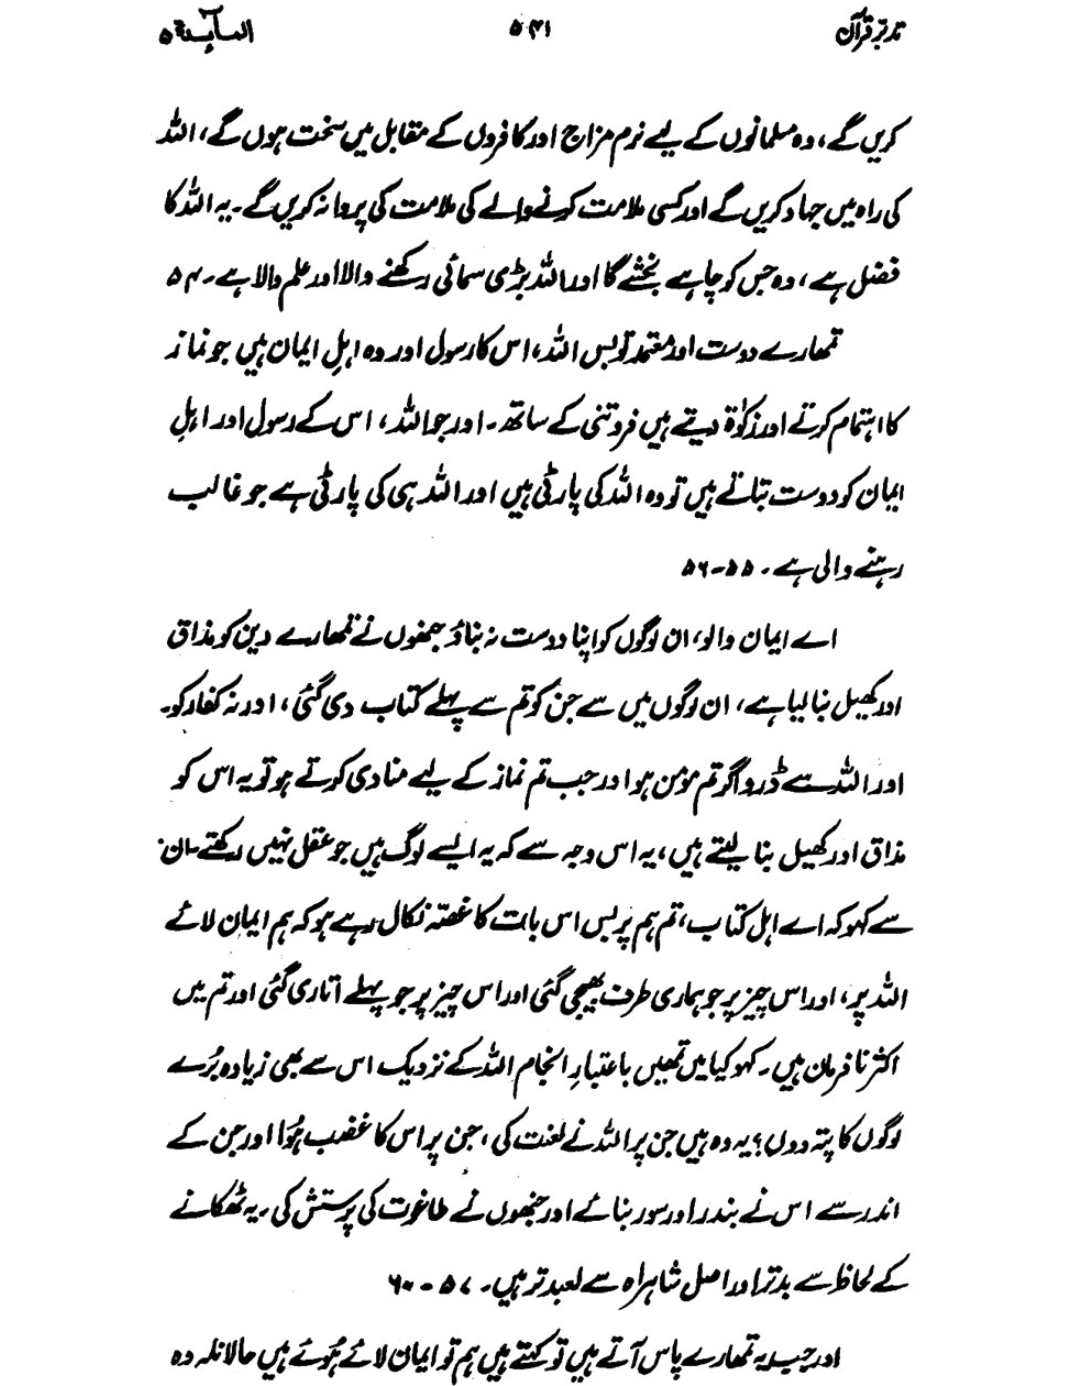 تدبر قرآن ۵۴۱ المآئدة ۵
کریں گے، وہ مسلمانوں کے لیے نرم مزاج اور کافروں کے مقابل میں سخت ہوں گے، اللہ
کی راہ میں جہاد کریں گے اور کسی ملامت کرنے والے کی ملامت کی پروا نہ کریں گے۔ یہ اللہ کا
فضل ہے، وہ جس کو چاہے بخشے گا اور اللہ بڑی سمائی رکھنے والا اور علم والا ہے۔ ۵۴
تمھارے دوست اور معتمد تو بس اللہ، اس کا رسول اور وہ اہلِ ایمان ہیں جو نماز
کا اہتمام کرتے اور زکوٰۃ دیتے ہیں فروتنی کے ساتھ۔ اور جو اللہ، اس کے رسول اور اہلِ
ایمان کو دوست بناتے ہیں تو وہ اللہ کی پارٹی ہیں اور اللہ ہی کی پارٹی ہے جو غالب
رہنے والی ہے۔ ۵۵-۵۶
اے ایمان والو، ان لوگوں کو اپنا دوست نہ بناؤ جنھوں نے تمھارے دین کو مذاق
اور کھیل بنا لیا ہے، ان لوگوں میں سے جن کو تم سے پہلے کتاب دی گئی، اور نہ کفار کو۔
اور اللہ سے ڈرو اگر تم مومن ہو اور جب تم نماز کے لیے منادی کرتے ہو تو یہ اس کو
مذاق اور کھیل بنا لیتے ہیں، یہ اس وجہ سے کہ یہ ایسے لوگ ہیں جو عقل نہیں رکھتے۔ ان
سے کہو کہ اے اہل کتاب، تم ہم پر بس اس بات کا غصّہ نکال رہے ہو کہ ہم ایمان لائے
اللہ پر، اور اس چیز پر جو ہماری طرف بھیجی گئی اور اس چیز پر جو پہلے اتاری گئی اور تم میں
اکثر نافرمان ہیں۔ کہو کیا میں تمھیں باعتبارِ انجام اللہ کے نزدیک اس سے بھی زیادہ بُرے
لوگوں کا پتہ دوں؟ یہ وہ ہیں جن پر اللہ نے لعنت کی، جن پر اس کا غضب ہُوا اور جن کے
اندر سے اس نے بندر اور سور بنائے اور جنھوں نے طاغوت کی پرستش کی۔ یہ ٹھکانے
کے لحاظ سے بدتر اور اصل شاہراہ سے بعید تر ہیں۔ ۵۷-۶۰
اور جب یہ تمھارے پاس آتے ہیں تو کہتے ہیں ہم تو ایمان لائے ہُوئے ہیں حالانکہ وہ